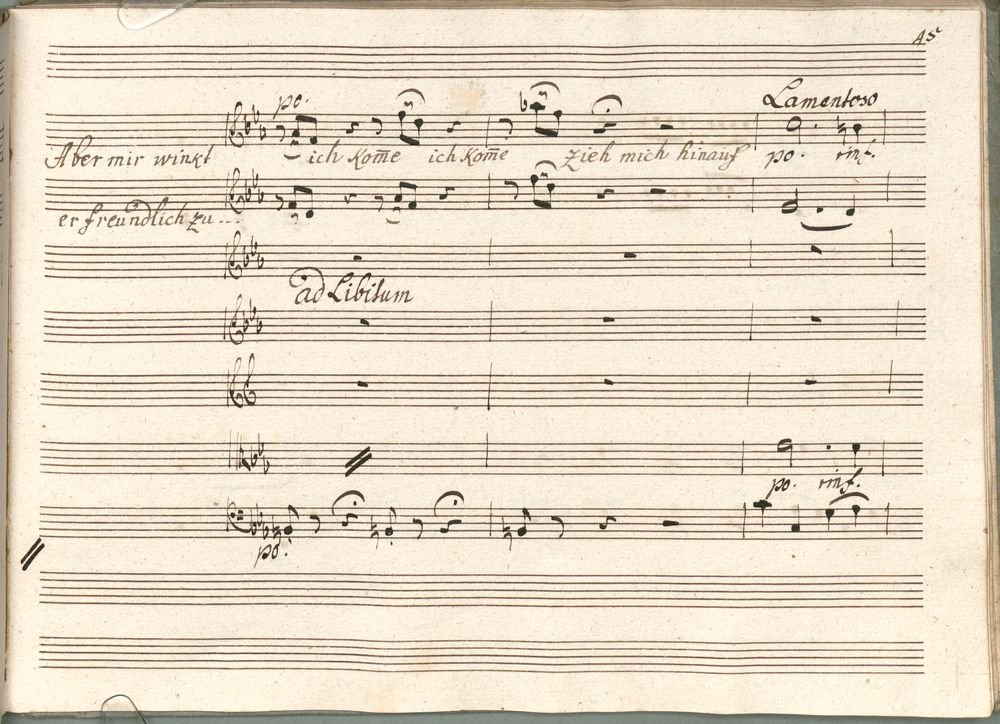 45
po.
Lamentoso
Aber mir winkt ich kom̄e ich kom̄e zieh mich hinauf po. rinf.
er freundlich zu...
ad Libitum
po. rinf.
po.